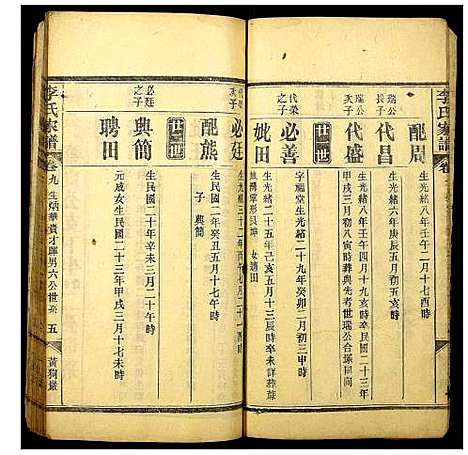 李氏家譜
配周
生光緒八年壬午二月十七酉時
瑞公長子
代昌
生光緒六年庚辰五月初六亥時
瑞公次子
代盛
生光緒八年壬午四月十九亥時卒民國二十三年
甲戌三月初八寅時葬與先考世瑞公合塚同向
廿一世
代榮之子
必善
字福堂生光緒二十九年癸卯二月初三申時
妣田
生光緒二十五年己亥五月十三辰時卒未詳葬
女適田
次子
必廷
配熊
生民國二年癸丑五月十七午時
子 興簡
廿二世
必廷之子
興簡
生民國二十年辛未三月二十午時
聘田
元成女生民國二十三年甲戌三月十七未時
李氏家譜
卷九
五
黃狗壋